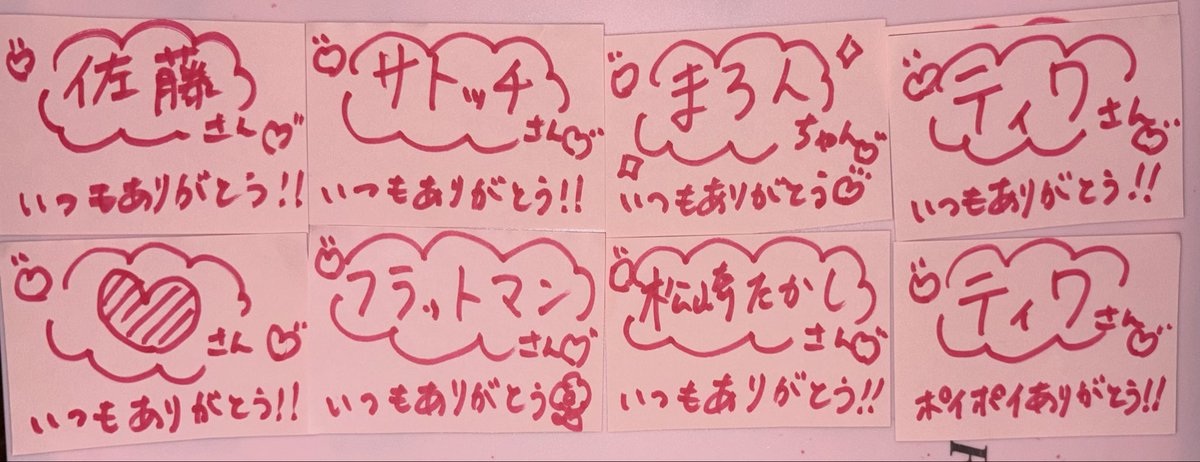 佐藤さん
いつもありがとう!!
サトッチさん
いつもありがとう!!
まろんちゃん
いつもありがとう
ティワさん
いつもありがとう!!
さん
いつもありがとう!!
フラットマンさん
いつもありがとう
松崎たかしさん
いつもありがとう!!
ティワさん
ポイポイありがとう!!